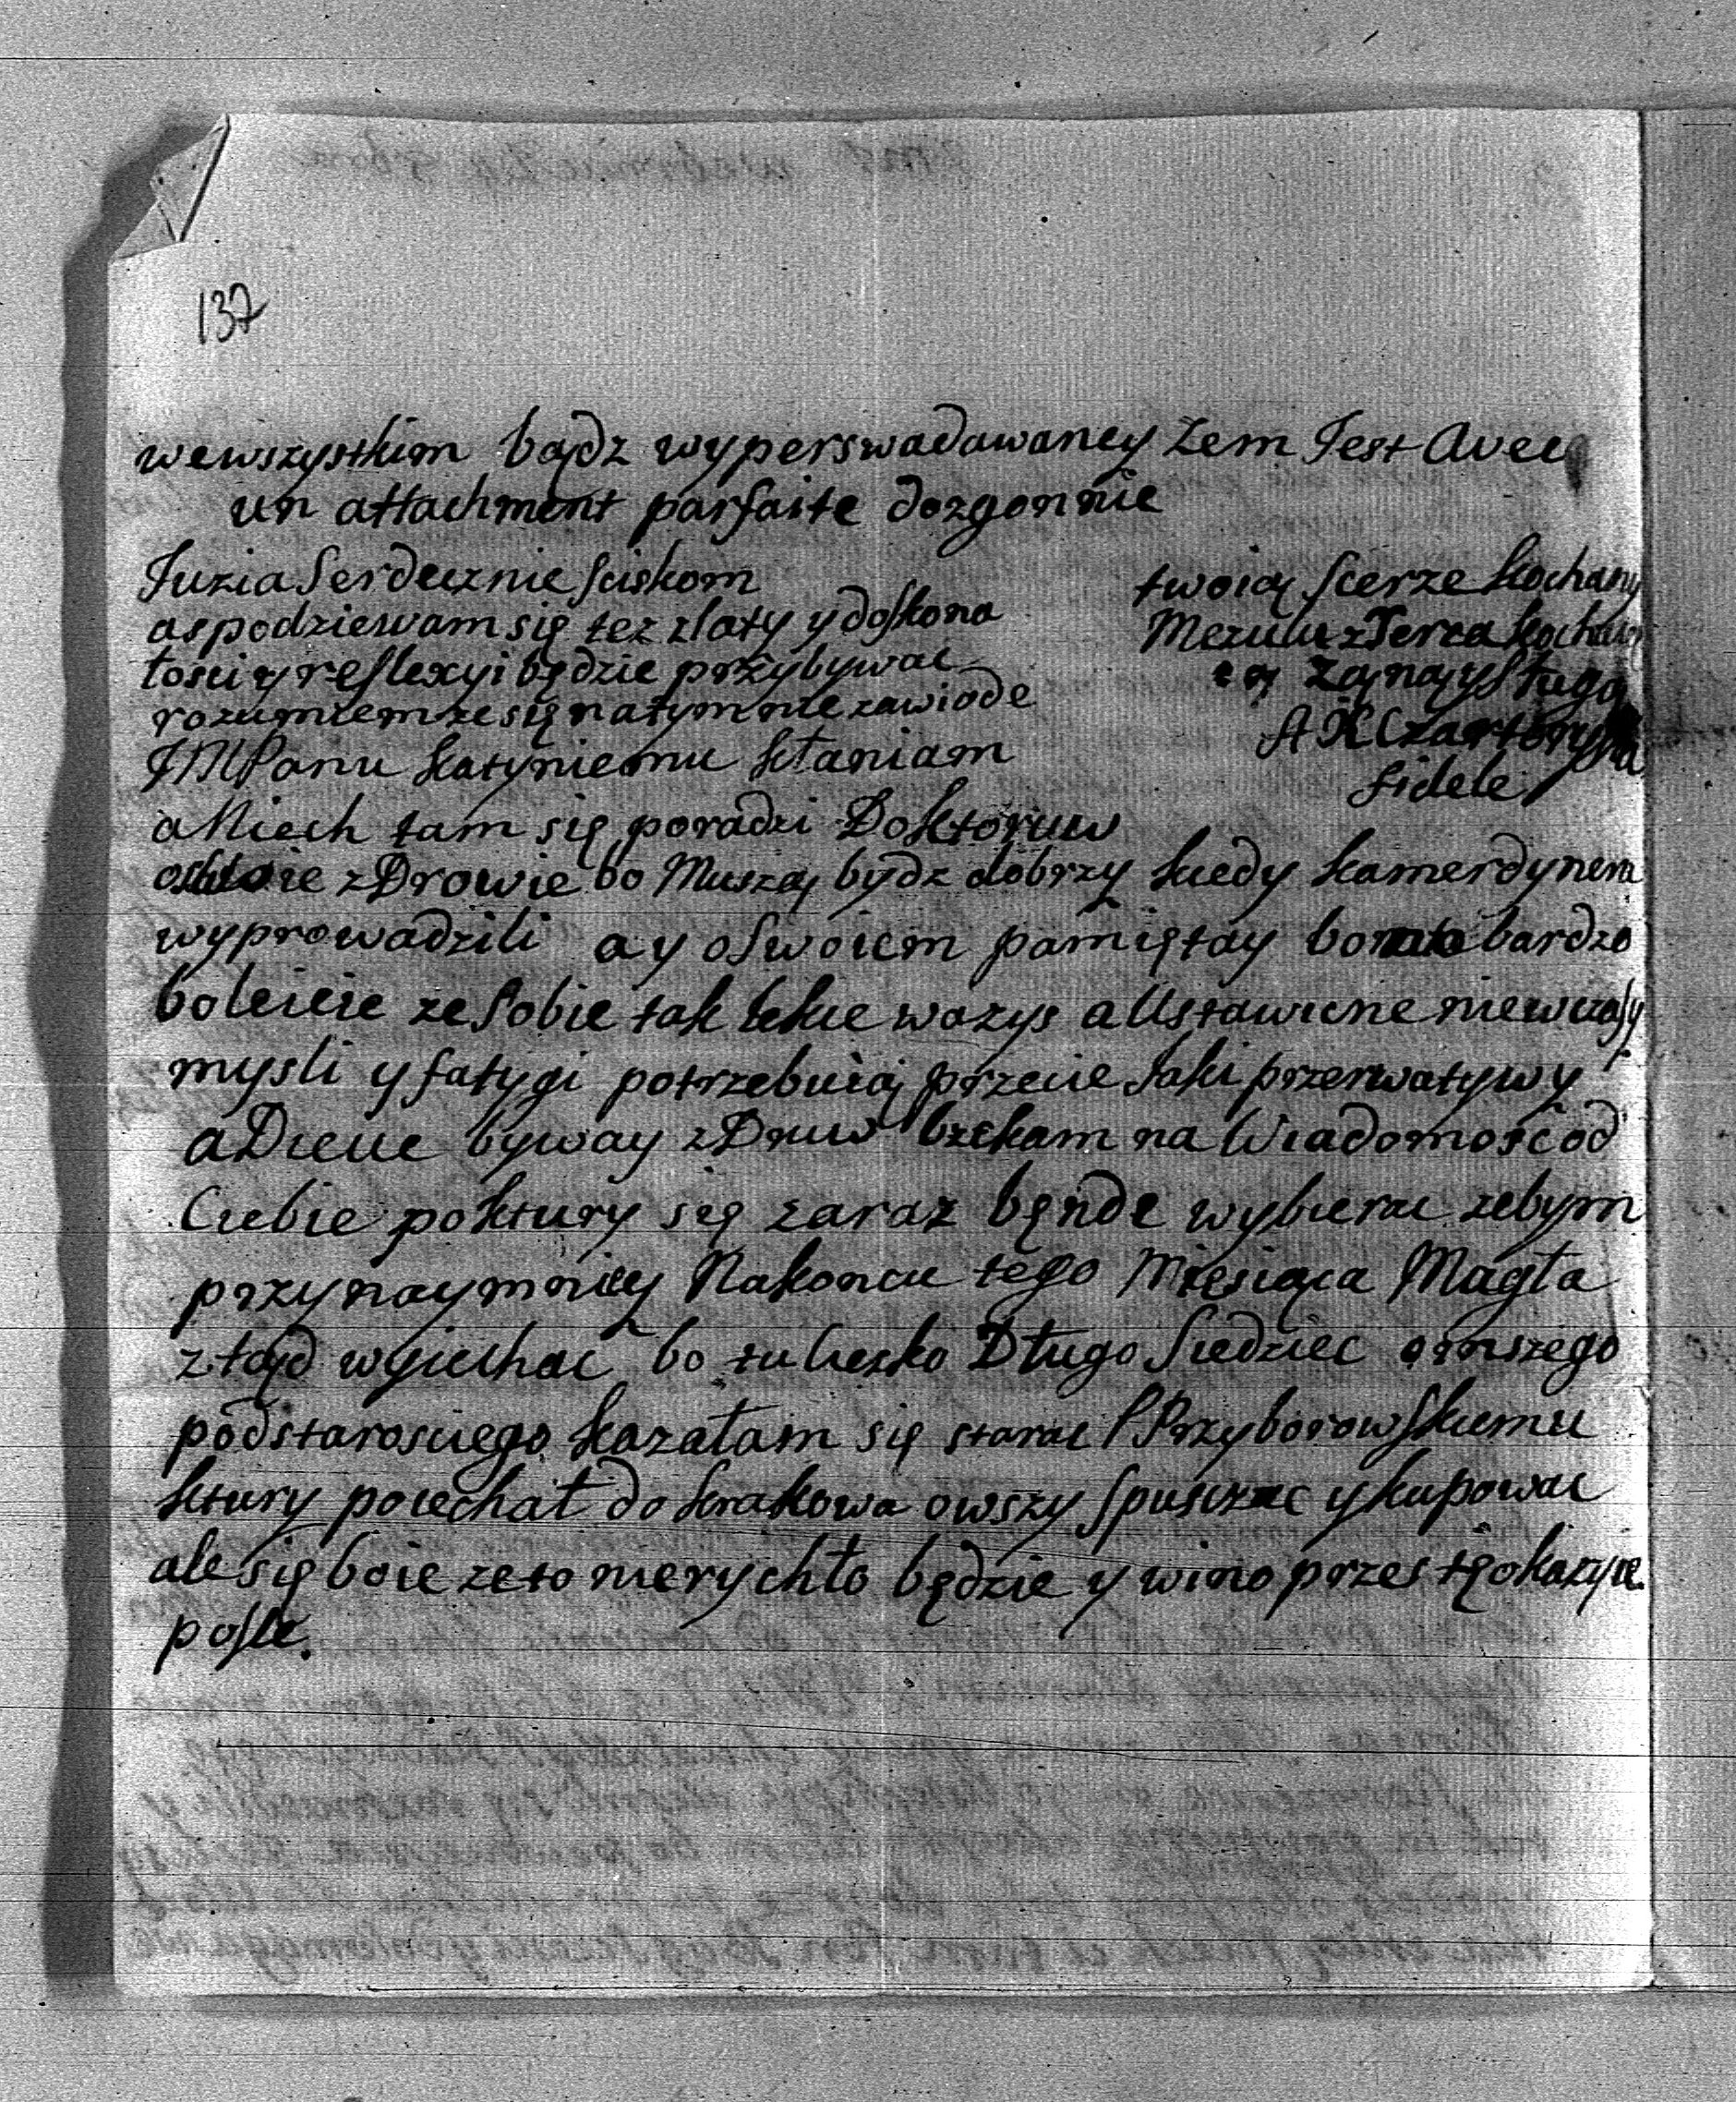 137
wewszystkim bądz wyperswadowaney żem Jest Avec
un attachment parfaite dozgonnie
Juzia Serdecznie sciskom
aspodziewam się tez zlaty y doskona
łosci y reflexyi będzie przybywac
rozumiem ze się natym nie zawiode
JMPanu katyniemu kłaniam
aNiech tam się poradzi Doktoruw
twoią scerze kochaną
Mezulu z Serca kochaią
cą Zoną y Sługą
AKCzartoryska
fidele
zDrowie bo Muszą bydz dobrzy kiedy kamerdynera
wyprowadzili a y oswoiem pamiętay bo bardzo
boleiecie ze sobie tak lekie wazys a Ustawicne niewczasy
mysli y fatygi potrzebuią przecie Jaki przerwatywy
aDieue byway zDruw bzekam na Wiadomość od
Ciebie poktury się zaraz będe wybierac zebym
przynaymniey Nakoncu tego Miesiąca Magła
ztąd wyiechać bo tu Długo siedzieć omszego
podstarosciego kazałam się starac PPrzyborowskiemu
ktury poiechał do krakowa owszy spuszczac y kupowac
ale się boie zeto nierychło będzie y wino przes tęokazyie
posle.